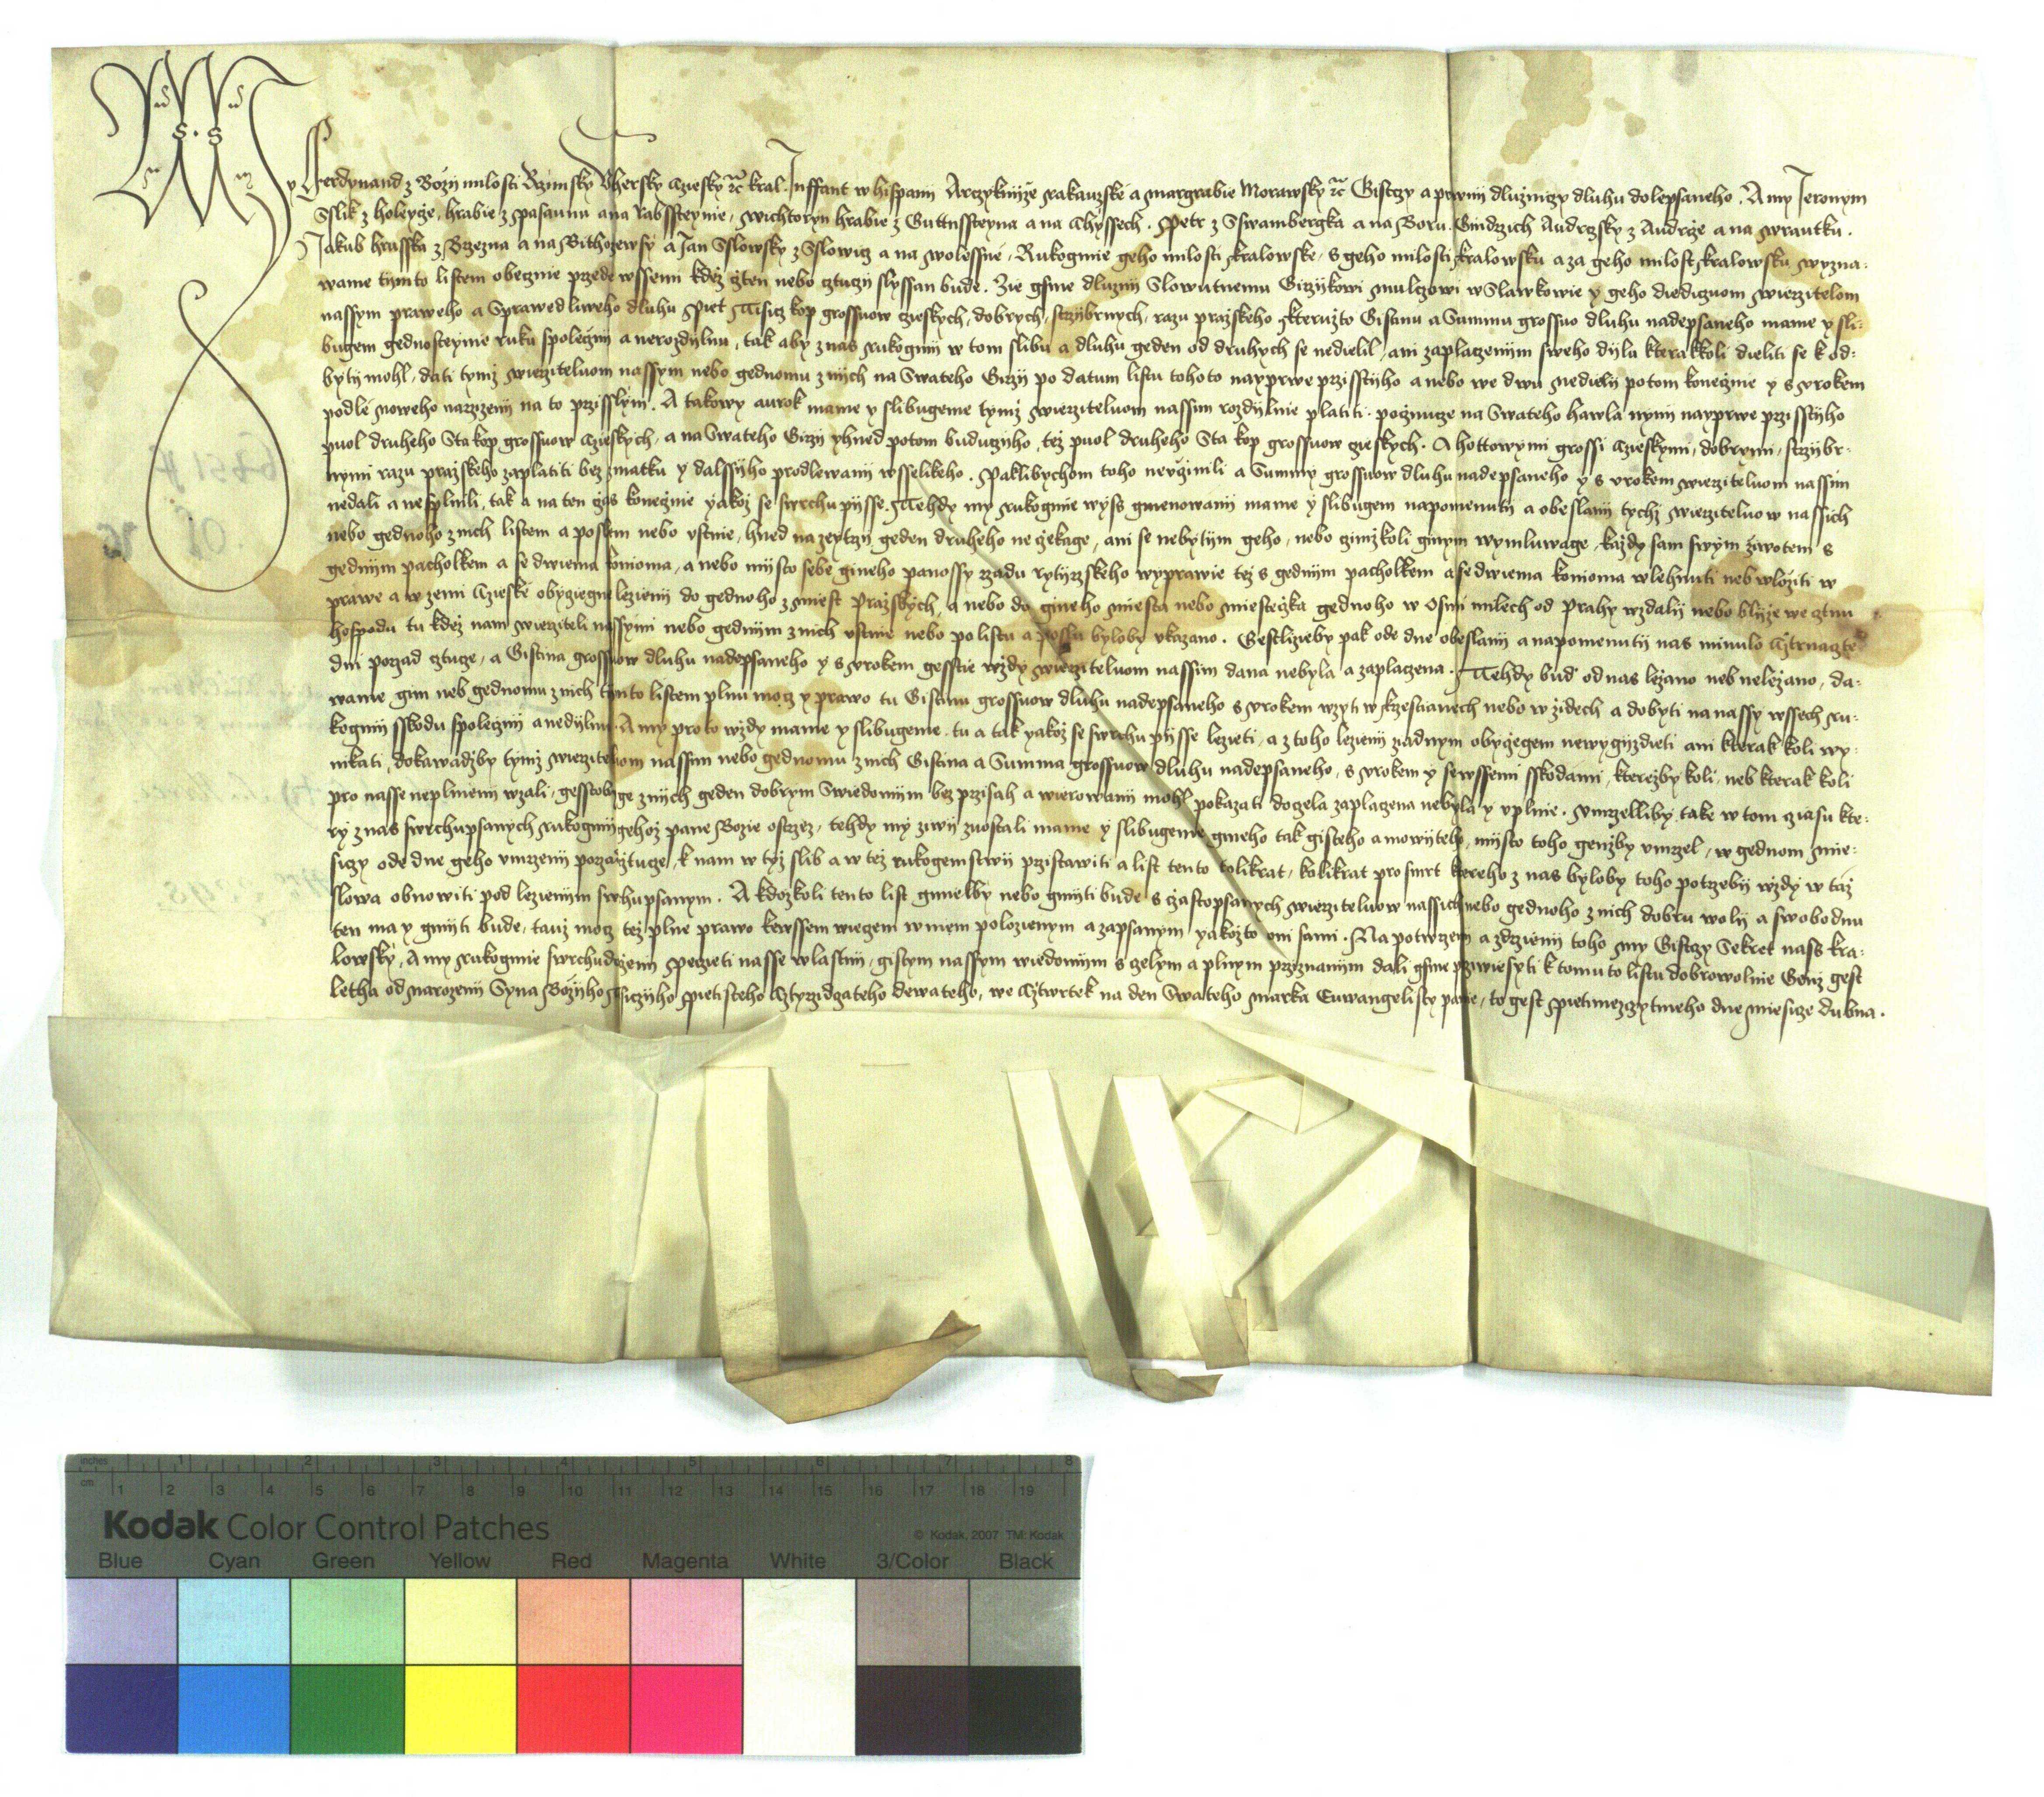 My Ferdynand z Bozij milosti Rzimsky Vhersky Cziesky ꝛc̃ kral. Inffant w hispanij Arczyknijze rakauzske a margrabie Morawsky ꝛc̃ Gistczy a prwnij dluznijczy dluhu dolepsaneho. A my Jeronym
Sslik z holeycze, hrabie z pasaunu a na rabssteynie, wichtoryn hrabie z Guttnssteyna a na Chyssech. Petr z Sswambergka a na Boru. Gindrzich Audrczsky z Audrcze a na wrautku.
Jakub hrusska z Brzezna a na Bithozewsy a Jan Sslowsky z Sslowicz a na wolessne, Rukogmie geho milosti kralowske, s geho milosti kralowsku a za geho milost kralowsku wyzna:
wame tijmto listem obecznie przede wssemi kdez czten nebo cztuczy slyssan bude. Zie gsme dluznij Slowutnemu Girzijkowi mulczowi w Slawkowie y geho diediczuom wierzitelom
nassym praweho a Sprawedliweho dluhu piet Tisicz kop grossuow czieskych, dobrych, strzijbrnych, razu prazskeho kteruzto Gistinu a Summu grossuo dluhu nadepsaneho mame y sli:
bugem gednosteynie ruku spoleczni a nerozdijlnu, tak aby z nas rukogmij w tom slibu a dluhu geden od druhych se nedielil, ani zaplaczenijm sweho dijlu kterakkoli dieliti se k od:
bytij mohl, dati tymz wierziteluom nassym nebo gednomu z nijch na Swateho Girzij po datum listu tohoto nayprwe przisstijho a nebo we dwu nedielij potom koneznie y s vrokem
podle noweho narzizenij na to przisslym. A takowy aurok mame y slibugeme tymz wierziteluom nassim rozdijlnie platiti. poznucze na Swateho hawla nynij nayprwe przisstijho
puol druheho Sta kop grossuow czieskych, a na Swateho Girzij yhned potom buduczyho, tez puol druheho Sta kop grossuow czieskych. A hottowymi grossi czieskymi, dobrymi, strzijbr:
nymi razu prazskeho zaplatiti bez zmatku y dalssijho prodlewanij wsselikeho. Paklibychom toho nevczinili a Summy grossuow dluhu nadepsaneho y s vrokem wierziteluom nassim
nedali a nesplnili, tak a na ten czas koneznie yakoz se swrchu pijsse. Tehdy my rukogmie wyss gmenowanij mame y slibugem napomenuti a obeslanij tychz wierziteluow nassich
nebo gednoho z nich listem a poslem nebo vstnie, hned nazeytrzij geden druheho neczekage, ani se nebytijm geho, nebo czimzkoli ginym wymluwage, kazdy sam swym ziwotem s
gednijm pacholkem a se dwiema konioma, a nebo mijsto sebe gineho panossy rzadu rytijrzskeho wyprawie tez s gednijm pacholkem a se dwiema konioma wlehnuti neb wloziti w
prawe a w zemi Czieske obyczegne lezienij do gednoho z miest Prazskych, a nebo do gineho miesta nebo miesteczka gednoho w osmi milech od Prahy wzdalij nebo blijze we cztnu
hospodu tu kdez nam wierziteli nassymi nebo gednijm z nich vstnie nebo po listu a poslu byloby vkazano. Gestlizieby pak ode dne obeslanij a napomenutij nas minulo Cztrnaczte
dni porzad cztucze, a Gistina grossuow dluhu nadepsaneho y s vrokem gesstie wzdy wierziteluom nassim dana nebyla a zaplaczena. Tehdy bud od nas lezano neb nelezano, da:
wame gim neb gednomu z nich tijmto listem plnu mocz y prawo tu Gistinu grossuow dluhu nadepsaneho s vrokem wzyti w krzestianech nebo w zidech a dobyti na nassy wssech ru:
kogmij sskodu spoleczni a nedijlnu. A my proto wzdy mame y slibugeme, tu a tak yakoz se swrchu pijsse lezieti, a z toho lezienij ziadnym obyczegem newygijzdieti ani kterak koli wy:
nikati, dokawadzby tymz wierziteluom nassim nebo gednomu z nich Gistina a Summa grossuow dluhu nadepsaneho, s vrokem y se wssemi sskodami, kterezby koli, neb kterak koli
pro nasse neplnienij wzali, gesstobyge z nijch geden dobrym Swiedomijm bez przisah a wierowanij mohl pokazati docela zaplaczena nebyla y vplnie. vmrzelliby take w tom cziasu kte:
ry z nas swrchupsanych rukogmij gehoz pane Bozie ostrzez, tehdy my ziwij zuostali mame y slibugeme gineho tak gisteho a mowijteho, mijsto toho genzby vmrzel, w gednom mie:
siczy ode dne geho vmrzenij porzad cztucze, k nam w tyz slib a w tez rukogemstwij przistawiti a list tento tolikrat, kolikrat pro smrt ktereho z nas byloby toho potrzebij wzdy w taz
slowa obnowiti pod lezienijm swrchupsanym. A kdozkoli tento list gmielby nebo gmijti bude s czastopsanych wierziteluow nassich nebo gednoho z nich dobru wolij a swobodnu
ten ma y gmijti bude, tauz mocz tez plne prawo kewssem wieczem w niem polozienym a zapsanym yakozto oni sami. Na potwrzenij a zdrzienij toho my Gistczy Sekret nass kra:
lowsky, A my rukogmie swrchudczenij peczieti nasse wlastnij, gistym nassym wiedomijm s czelym a plnym przyznanijm dali gsme przwiesyti k tomuto listu dobrowolnie Genz gest
letha od narozenij Syna Bozijho Tisiczijho pietisteho Cztyrzidczateho dewateho, we Cztwrtek na den Swateho marka Euwangelisty pane, to gest pietmezczytmeho dne miesicze dubna.
inches 1 2 3 4 5 6 7 8
cm 1 2 3 4 5 6 7 8 9 10 11 12 13 14 15 16 17 18 19
Kodak Color Control Patches © Kodak, 2007 TM: Kodak
Blue Cyan Green Yellow Red Magenta White 3/Color Black